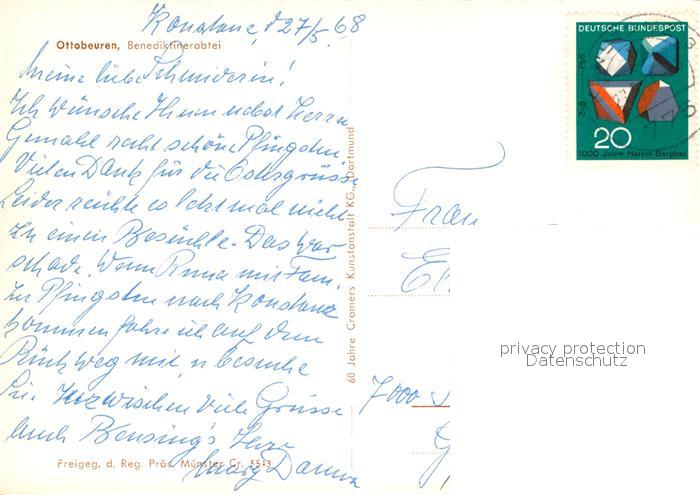 Konstanz, d 27/5. 68
Ottobeuren, Benediktinerabtei
Meine liebe Schmiderin!
Ich wünsche Ihnen nebst Herrn
Gemahl recht schöne Pfingsten
Vielen Dank für die Ostergrüsse
Leider reichte es letztmal nicht
zu einem Besuche. Das war
schade. Wenn mit Fam.
zu Pfingsten nach Konstanz
kommen fahre ich auf dem
Rückweg mit, u besuche
Sie. Inzwischen viele Grüsse
auch
Freigeg. d. Reg. Präs. Münster Cr. 5513
60 Jahre Cramers Kunstanstalt KG., Dortmund
DEUTSCHE BUNDESPOST
PbS
ZnS
20
1000 Jahre Harzer Bergbau
Frau
7000
privacy protection
Datenschutz